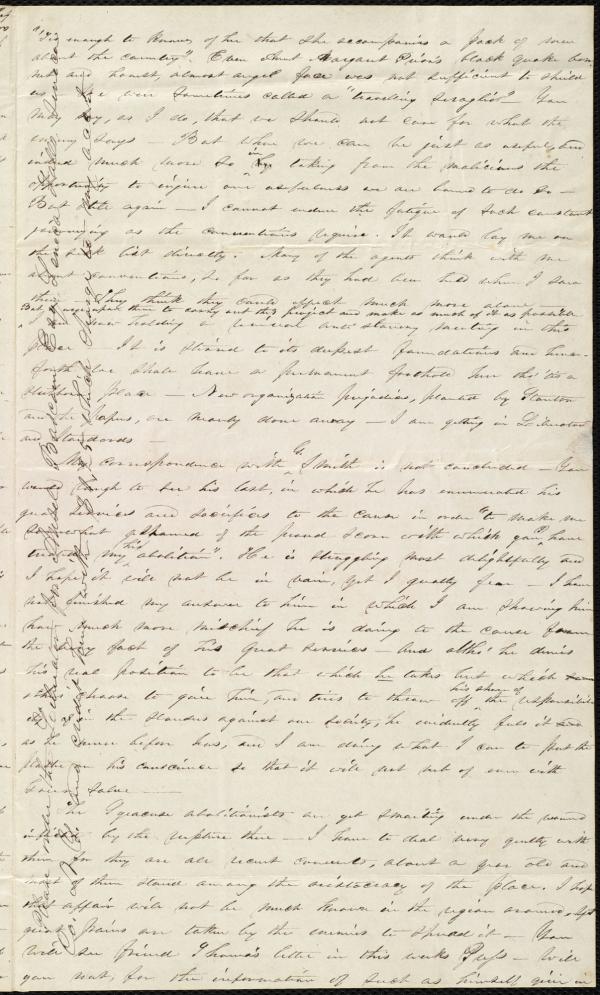 "Tis enough to know of her that she accompanies a pack of men
about the country". Even Aunt Margaret Prior's black quaker bon-
net and honest, almost angel face was not sufficient to shield
us. We were sometimes called a "travelling Seraglio" — You
may say, as I do, that we should not care for what the
enemy says — But when we can be just as useful, and
indeed much more so by in taking from the malicious the
opportunity to injure our usefulness we are bound to do so —
But again — I cannot endure the fatigue of such constant
journeying as the conventions require. It would lay me on
the sick list directly. Many of the agents think with me
about conventions, so far as they had been held when I saw
them — They think they could effect much more alone —
But I urge upon them to carry out this project and make as much of it as possible
I am now holding a revival anti slavery meeting in this
place — It is stirred to its deepest foundations and hence-
forth we shall have a permanent foothold here tho' tis a
stubborn place — New organization prejudices, planted by Stanton
and the papers, are nearly done away — I am getting in Liberators
and Standards —
My correspondence with G. Smith is not concluded — You
would laugh to see his last, in which he has enumerated his
great services and sacrifices to the cause in order "to make me
somewhat ashamed of the proud scorn with which you have
treated my his abolition". He is struggling most delightfully and
I hope it will not be in vain, yet I greatly fear. I have
not finished my answer to him in which I am showing him
how much more mischief he is doing to the cause from
the very fact of his great services — And altho' he denies
his real position to be that which he takes but which
others choose to give him, and tries to throw off his share of the responsibility
in the slanders against our society, he evidently feels it
as he never before has, and I am doing what I can to put the
plaster on his conscience so that it will not rub off even with
salve —
The Syracuse abolitionists are yet smarting under the wound
inflicted by the rupture there — I have to deal very gently with
them for they are all recent converts, about a year old and
most of them stand among the aristocracy of the place. I hope
that affair will not be much known in the region around,
great pains are taken by the enemies to spread it — You
will see friend Thomas's letter in this weeks Press — Will
you not, for the information of such as himself, give in